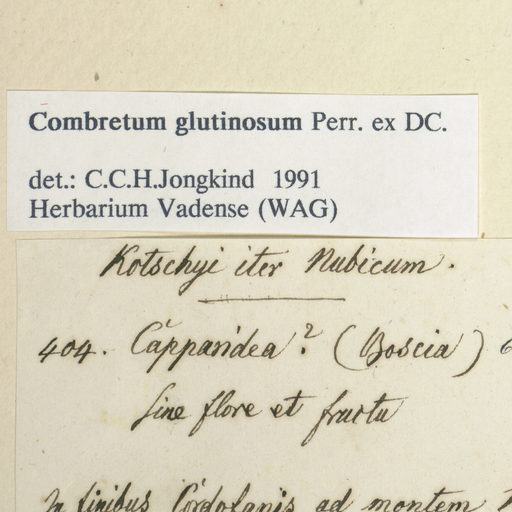 Combretum glutinosum Perr. ex DC.
det.: C.C.H.Jongkind 1991
Herbarium Vadense (WAG)
Kotschyi iter Nubicum.
404. Capparidea? (Boscia)
sine flore et fructu
In finibus Cordofanis ad montem